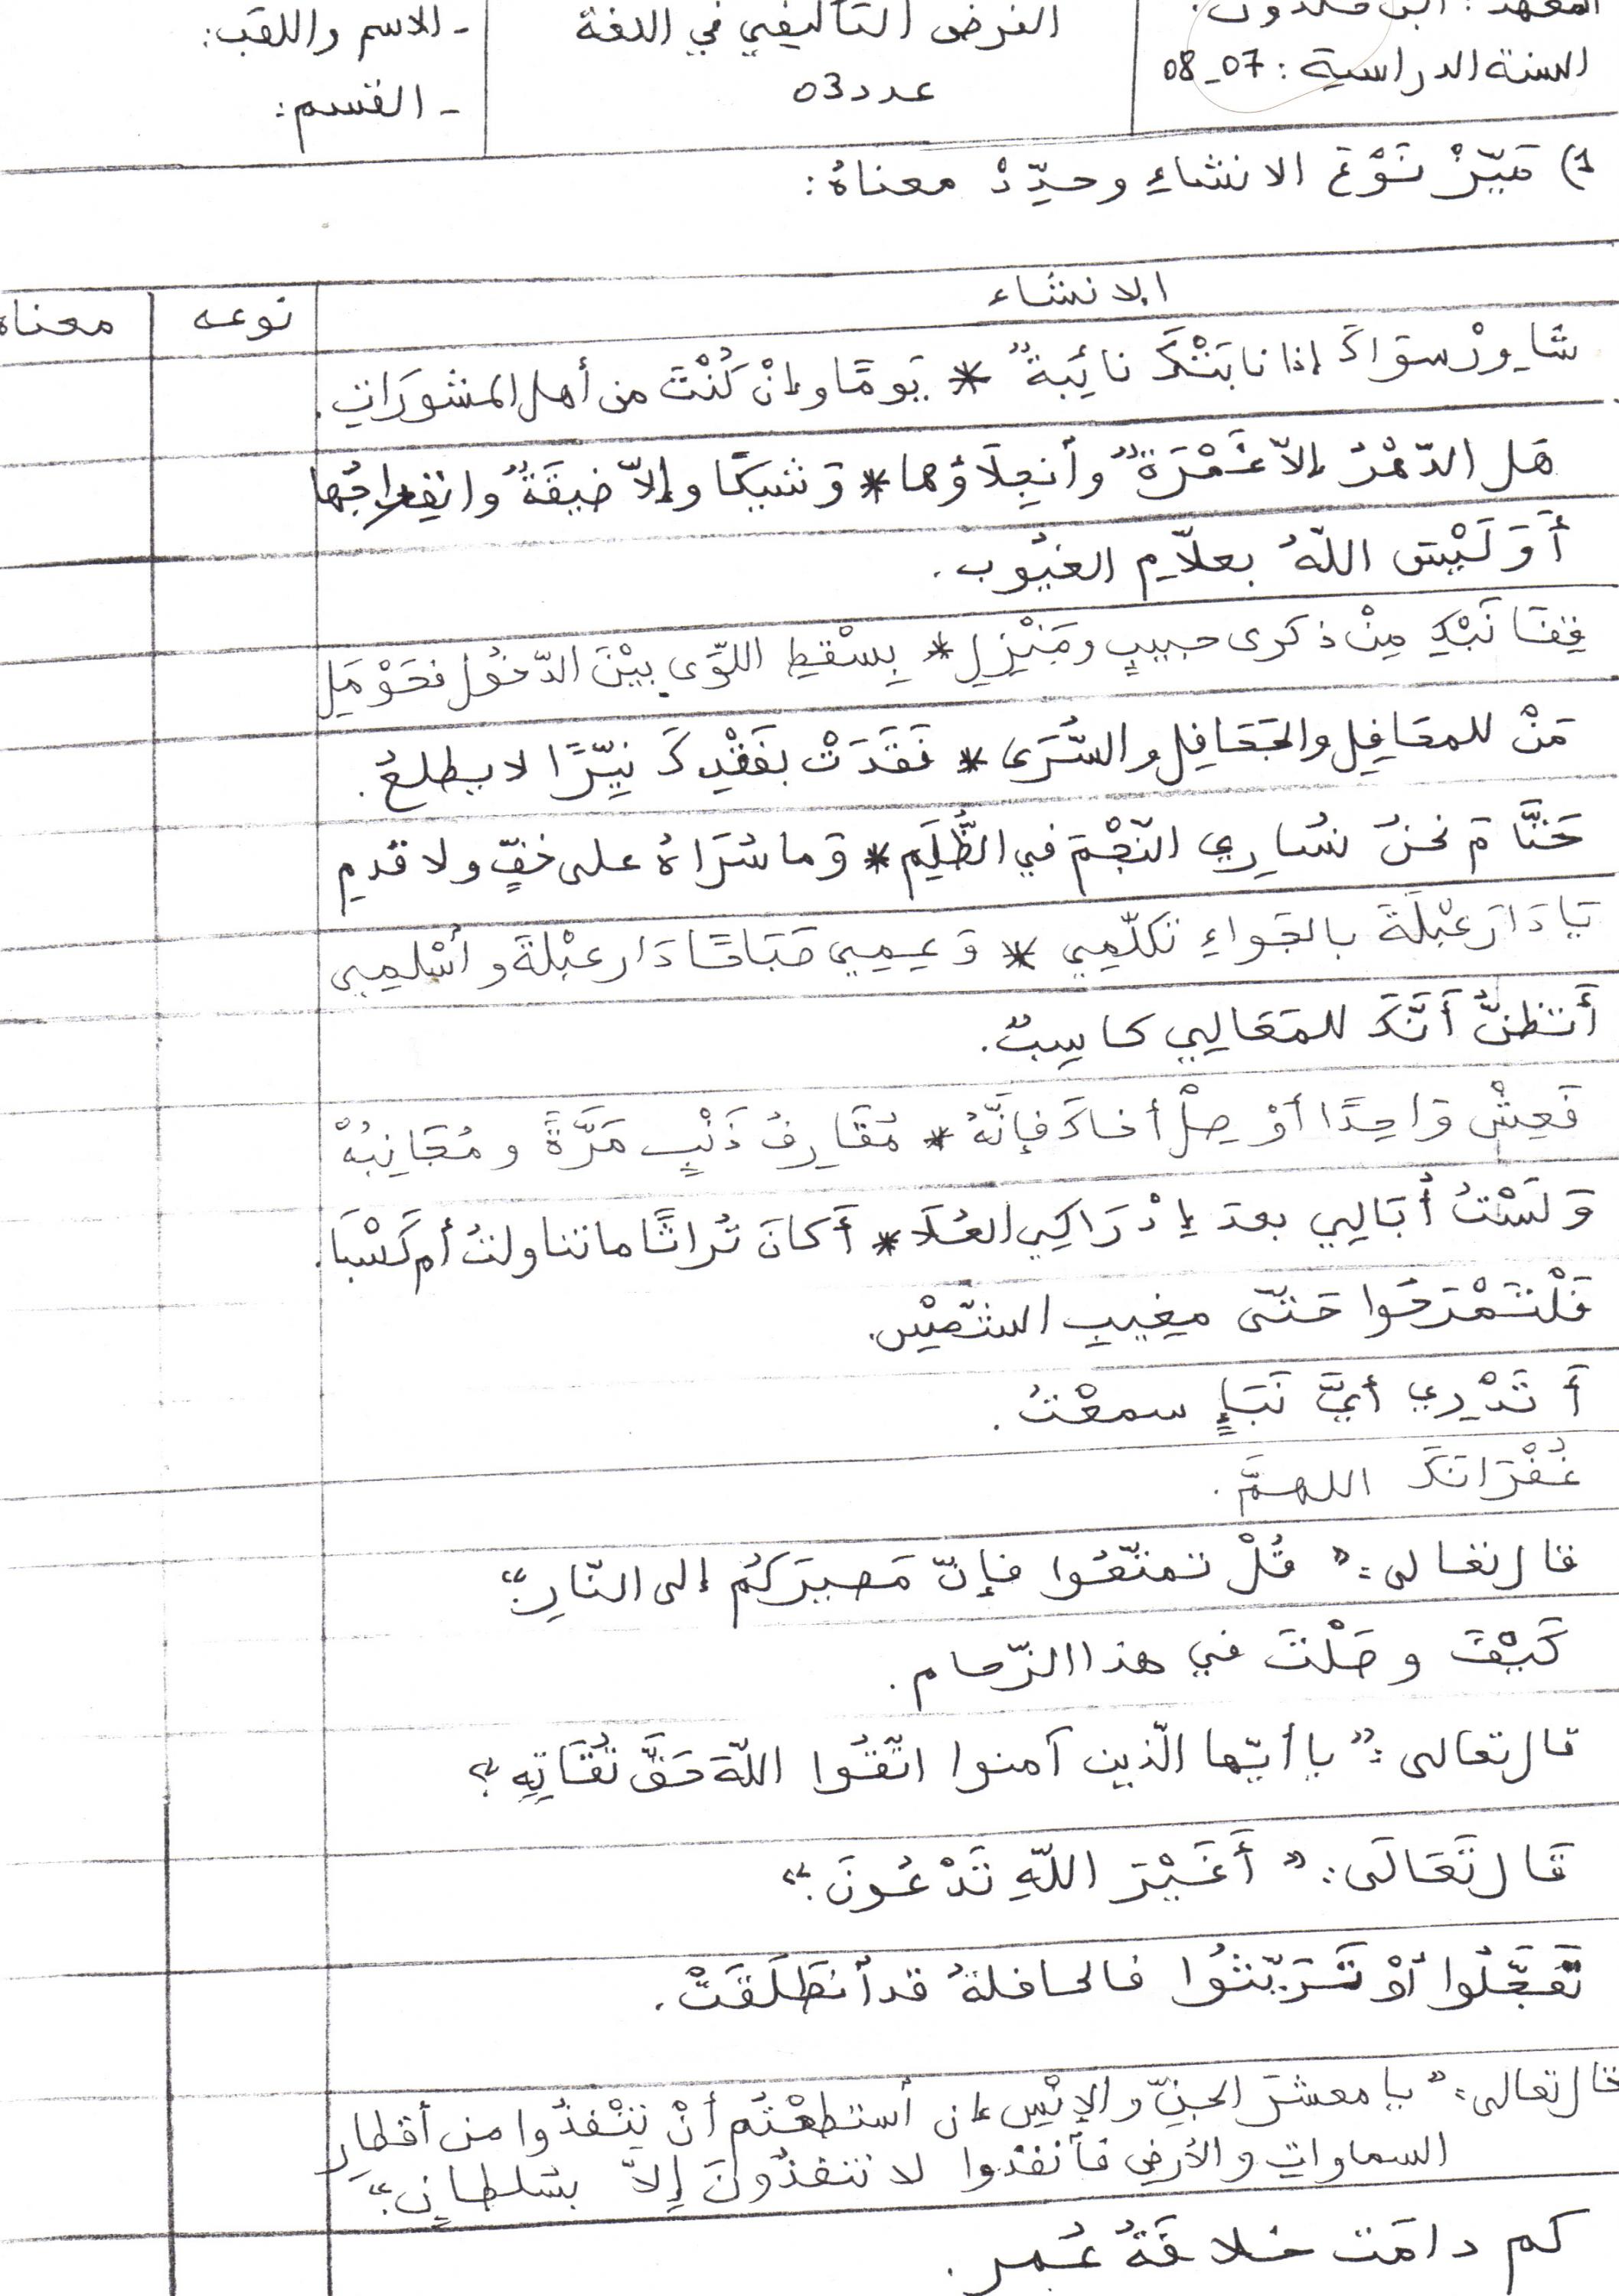 المعهد: ابن خلدون.
السنة الدراسية: 07-08
الفرض التأليفي في اللغة
عدد 03
- الاسم واللقب:
- القسم:
1) مَيِّزْ نَوْعَ الانشاءِ وحدِّدْ معناهُ:
الانشاء
نوعه
معناه
شاوِرْ سوَاكَ إذا نابَتْكَ نائِبةٌ * يَومًا وإنْ كُنْتَ من أهل المشورَاتِ.
هَل الدّهْرُ إلاّ غَمْرَةٌ وأنجِلَاؤها * وَشيكًا وإلاّ ضيقَةٌ وانفِراجُها
أَوَلَيْسَ اللّهُ بعلاّمِ الغيُوب.
قِفَا نَبْكِ مِنْ ذكرى حبيبٍ ومَنْزِلِ * بِسْقطِ اللّوَى بيْنَ الدّخُول فحَوْمَلِ
مَنْ للمحَافِلِ والجَحَافِلِ والسُّرَى * فَقَدَتْ بفَقْدِكَ نيِّرًا لا يطلعُ.
حَتَّامَ نحنُ نسُارِي النّجْمَ في الظُّلَمِ * وَما سُرَاهُ على خفٍّ ولا قدمِ
يَا دَارَ عبْلَةَ بالجَواءِ تكلّمِي * وَعِمِي صَبَاحًا دَارَ عبْلةَ وأسْلمِي
أَتظنُّ أَنَّكَ للمَعَالِي كاسِبٌ.
فَعِشْ وَاحِدًا أوْ صِلْ أخاكَ فإنَّهُ * مُقَارِفُ ذَنْبٍ مَرَّةً ومُجَانِبُهْ
وَلَسْتُ أُبَالِي بعدَ إدْرَاكِي العُلَا * أَكانَ تُراثًا ما تناولتُ أم كَسْبَا.
فَلْتَمْرَحُوا حَتّى مغِيبِ الشّمْسِ.
أَتَدْرِي أيَّ نَبَإٍ سمعْتُ.
غُفْرَانَكَ اللهمَّ.
قال تعالى: "قُلْ تمتّعُوا فإنّ مَصيرَكُم إلى النّارِ."
كَيْفَ وصَلْتَ في هذا الزّحام.
قال تعالى: "يا أيّها الّذين آمنوا اتّقُوا اللّهَ حَقَّ تُقَاتِهِ"
قَال تَعَالَى: "أَغَيْرَ اللّهِ تَدْعُونَ."
تَعَجَّلُوا أوْ تَرَيّثُوا فالحافلةُ قد أنطَلَقَتْ.
قال تعالى: "يا معشرَ الجنِّ والإنْسِ إن أستطعْتُم أنْ تنْفذُوا من أقطارِ
السماواتِ والأرضِ فأنفذوا لا تنفذُونَ إلاّ بسُلطانٍ."
كم دامَت خلافَةُ عُمر.